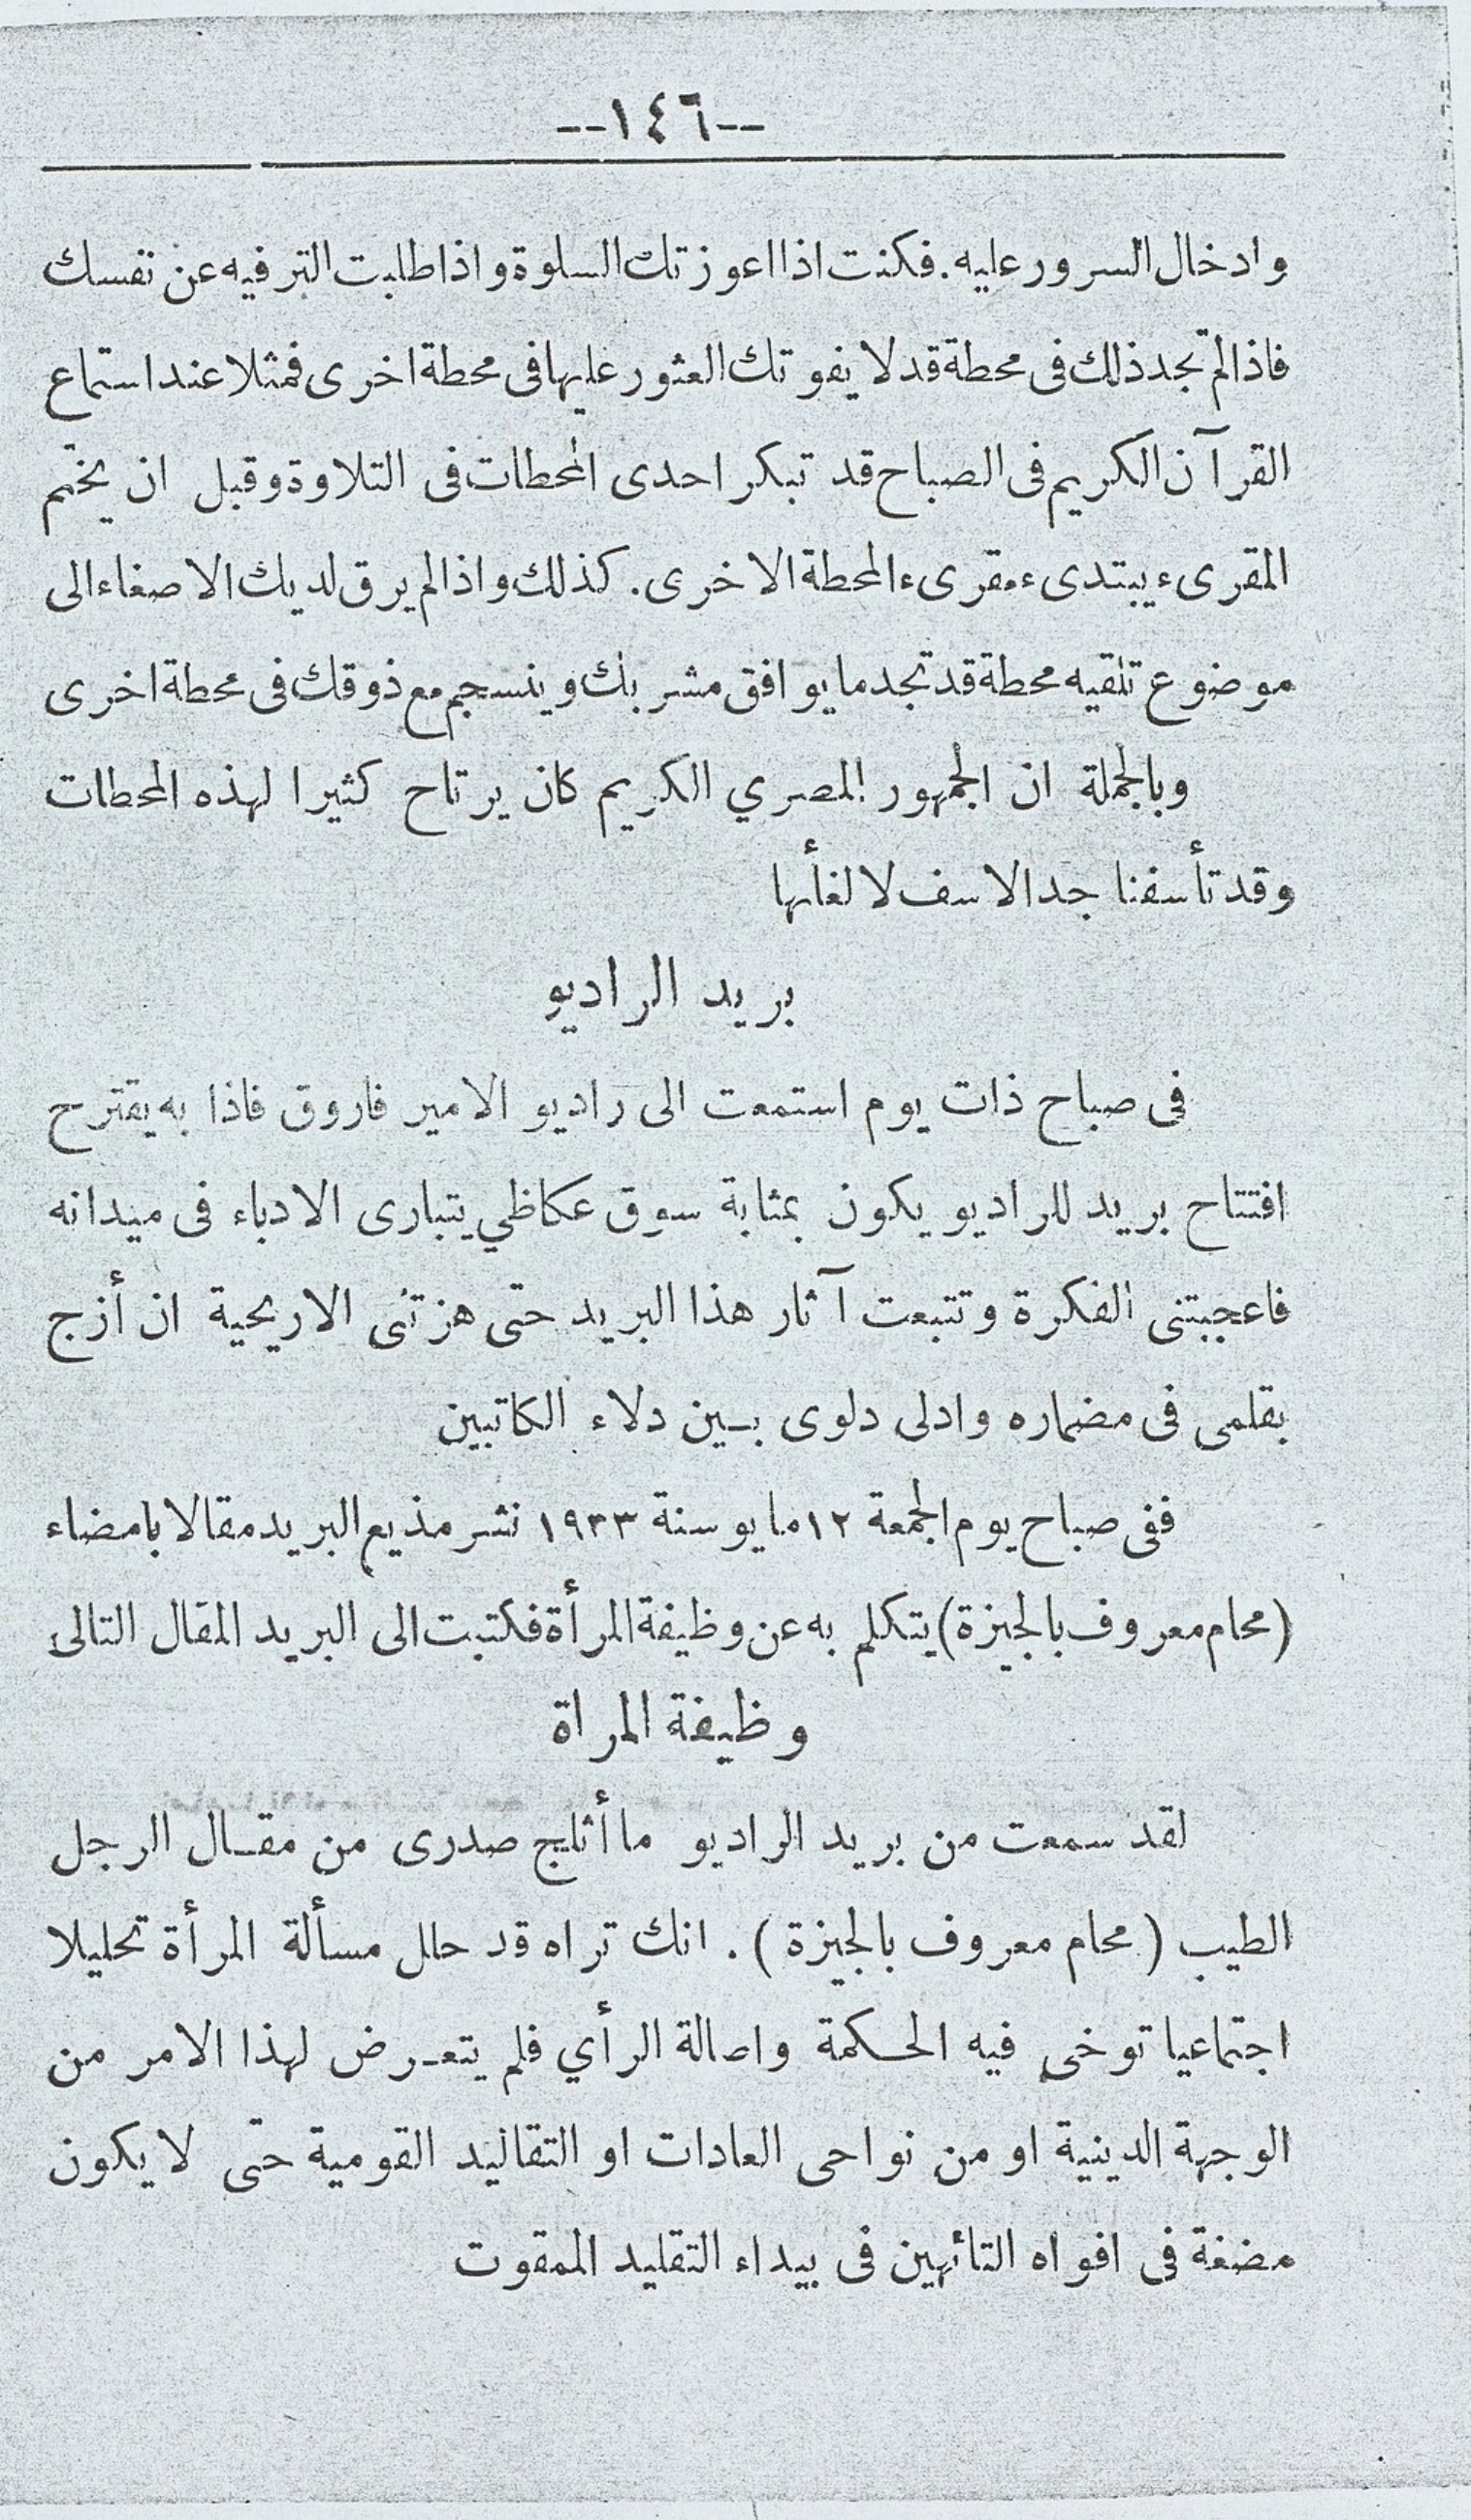 --١٤٦--
وادخال السرور عليه. فكنت اذا اعوزتك السلوة واذا طلبت الترفيه عن نفسك
فاذا لم تجد ذلك فى محطة قد لا يفوتك العثور عليها فى محطة اخرى فمثلا عند استماع
القرآن الكريم فى الصباح قد تبكر احدى المحطات فى التلاوة وقبل ان يختم
المقرىء يبتدىء مقرىء المحطة الاخرى. كذلك واذا لم يرق لديك الاصغاء الى
موضوع تلقيه محطة قد تجد ما يوافق مشربك وينسجم مع ذوقك فى محطة اخرى
وبالجملة ان الجمهور المصري الكريم كان يرتاح كثيرا لهذه المحطات
وقد تأسفنا جد الاسف لالغأها
بريد الراديو
فى صباح ذات يوم استمعت الى راديو الامير فاروق فاذا به يقترح
افتتاح بريد للراديو يكون بمثابة سوق عكاظي يتبارى الادباء فى ميدانه
فاعجبتنى الفكرة وتتبعت آثار هذا البريد حتى هزتنى الاريحية ان أزج
بقلمى فى مضماره وادلى دلوى بين دلاء الكاتبين
ففى صباح يوم الجمعة ١٢ مايو سنة ١٩٣٣ نشر مذيع البريد مقالا بامضاء
(محام معروف بالجيزة) يتكلم به عن وظيفة المرأة فكتبت الى البريد المقال التالى
وظيفة المراة
لقد سمعت من بريد الراديو ما أثلج صدرى من مقال الرجل
الطيب (محام معروف بالجيزة). انك تراه قد حلل مسألة المرأة تحليلا
اجتماعيا توخى فيه الحكمة واصالة الرأي فلم يتعرض لهذا الامر من
الوجهة الدينية او من نواحى العادات او التقاليد القومية حتى لا يكون
مضغة فى افواه التائهين فى بيداء التقليد الممقوت